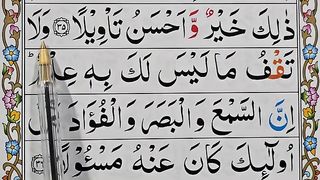 ذٰلِكَ خَيْرٌ وَّاَحْسَنُ تَاْوِيْلًا ﴿۳۵﴾ وَلَا
تَقْفُ مَا لَيْسَ لَكَ بِهٖ عِلْمٌ ؕ
اِنَّ السَّمْعَ وَالْبَصَرَ وَالْفُؤَادَ كُلُّ
اُولٰٓئِكَ كَانَ عَنْهُ مَسْـُٔوْلًا ﴿۳۶﴾